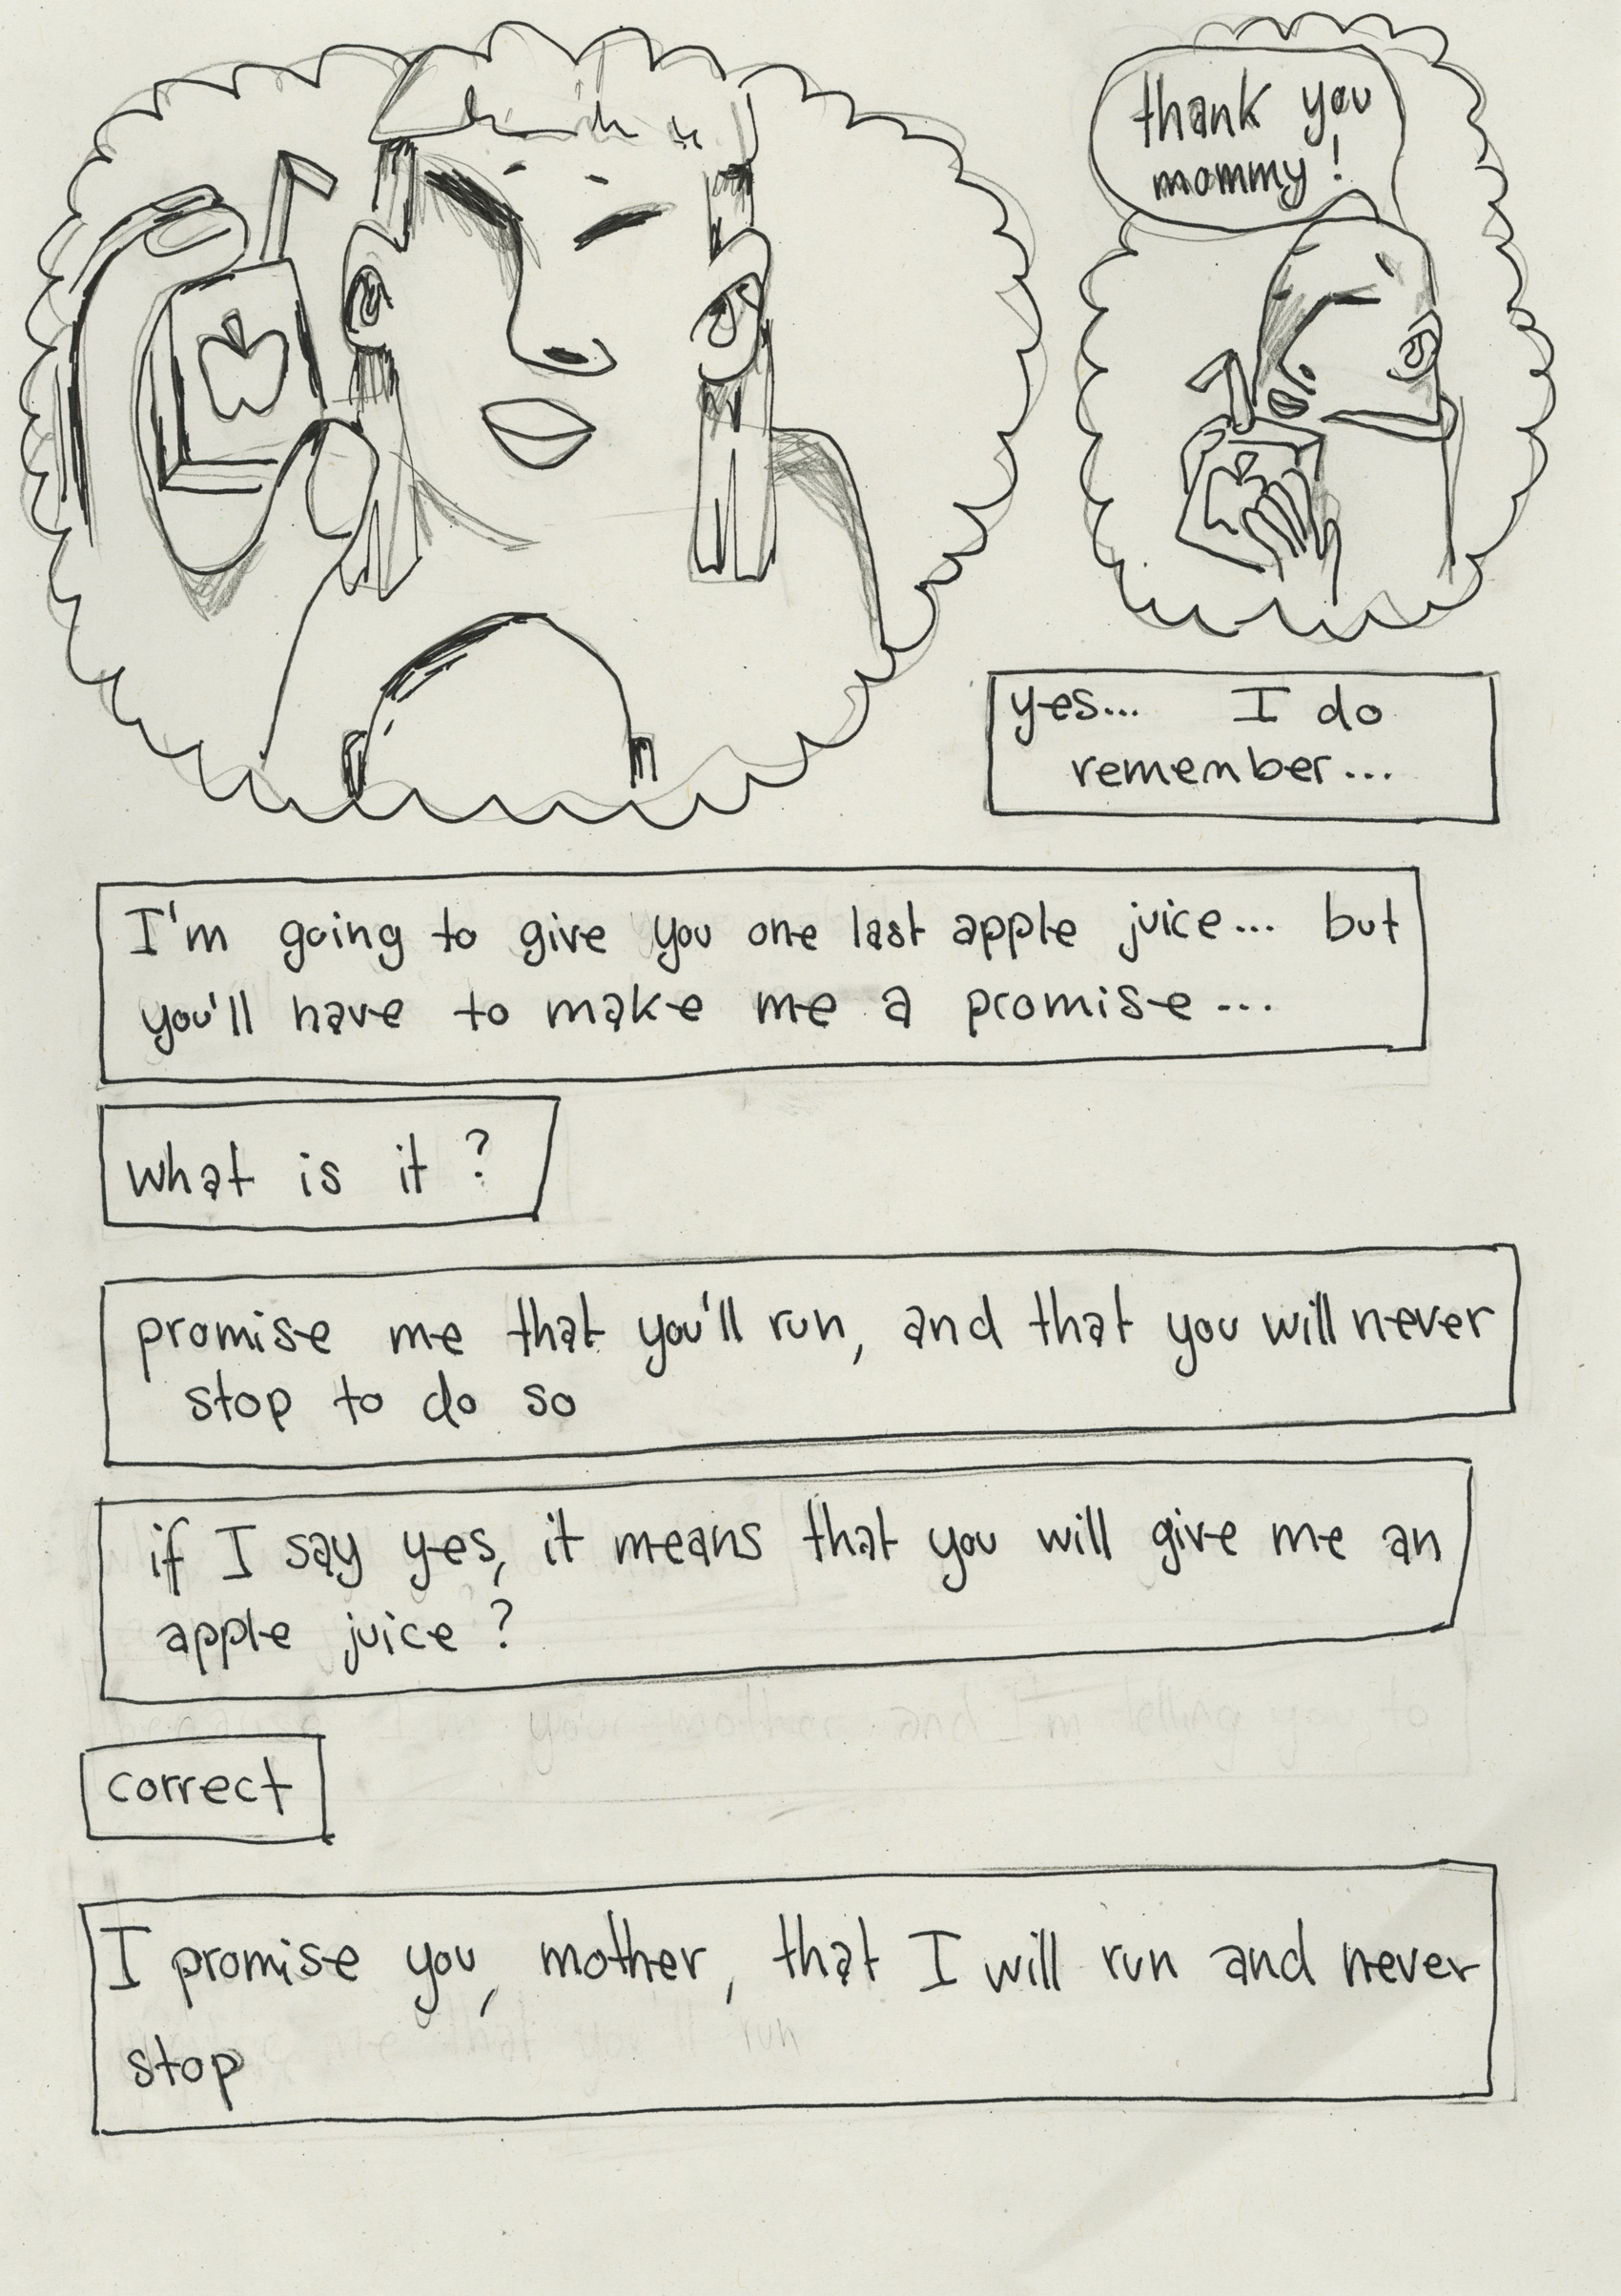 thank you
mommy!
yes... I do
remember...
I'm going to give you one last apple juice... but
you'll have to make me a promise...
what is it?
promise me that you'll run, and that you will never
stop to do so
if I say yes, it means that you will give me an
apple juice?
I'm your mother and I'm telling you to
correct
I promise you, mother, that I will run and never
stop
me that you'll run